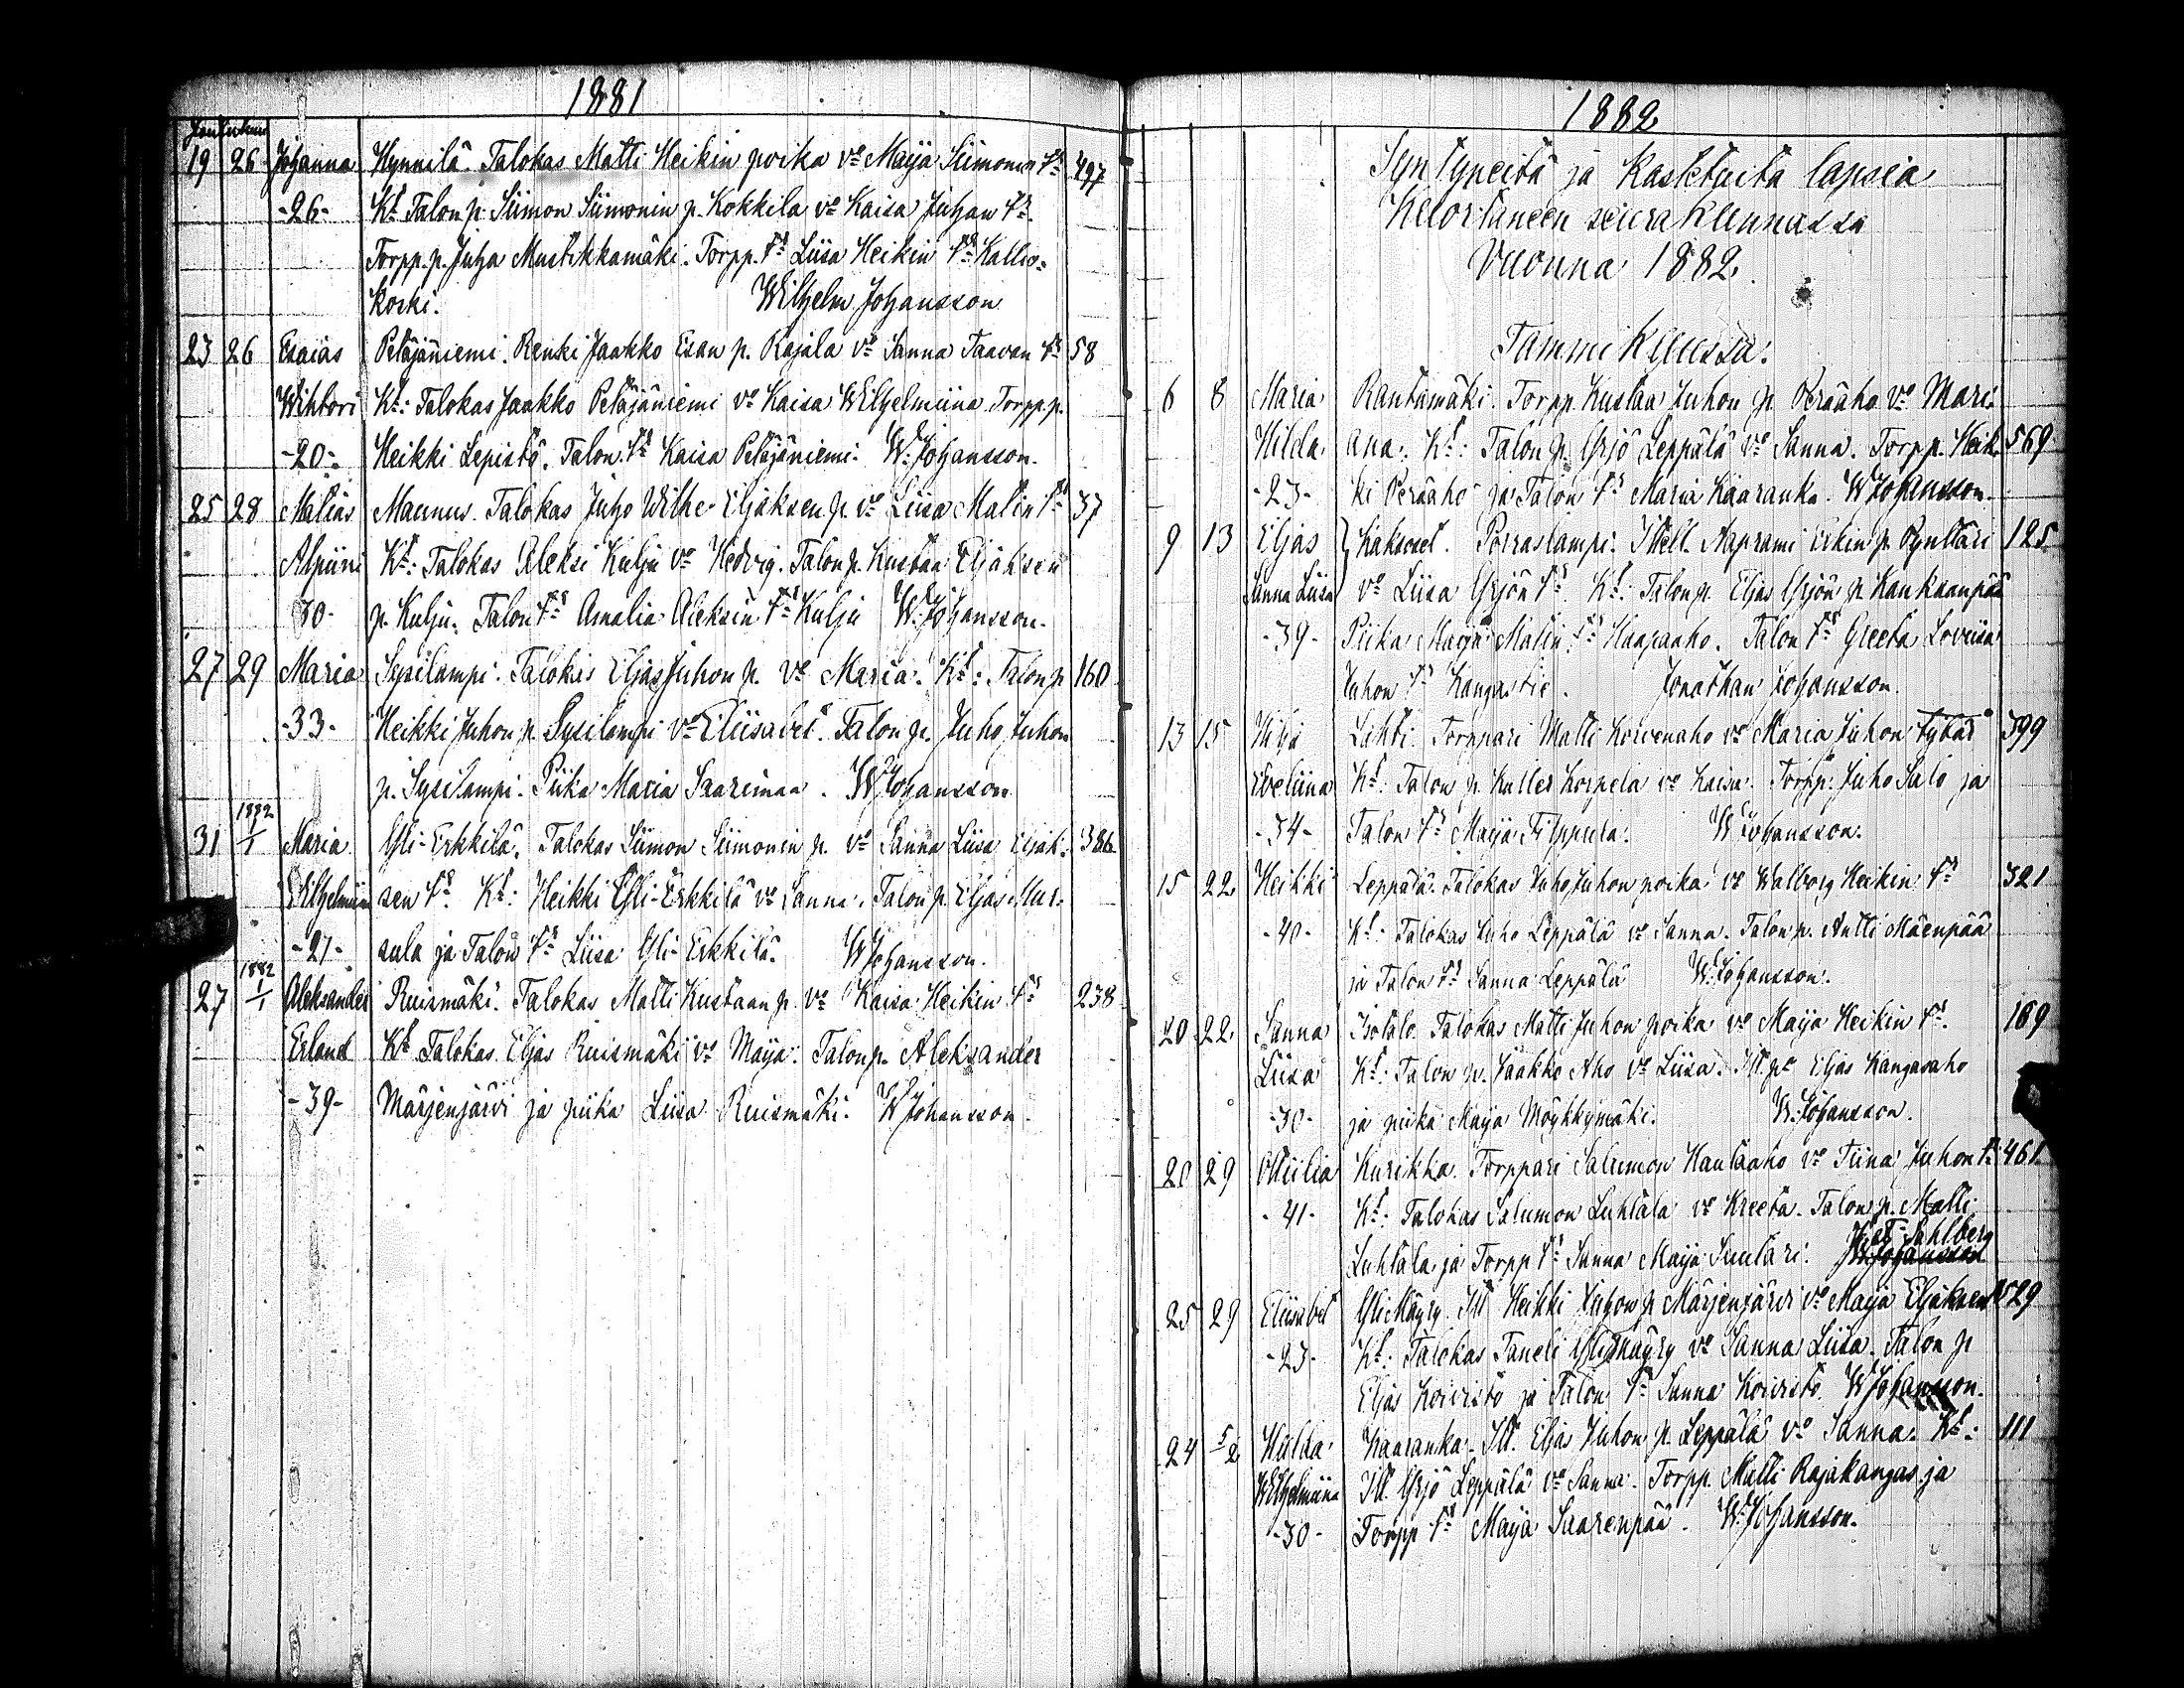 1881
Joulukuu
19 26 Johanna Hynnilä. Talokas Matti Heikin poika vo Maija Siimonin tr 497
-26- Kt Talon p. Siimon Siimonin p. Kokkila vo Kaisa Juhan tr.
Torpp. p. Juha Mustikkamäki. Torpp. tr Liisa Heikin tr Kallio-
koski. Wilhelm Johansson
23 26 Esaias Petäjäniemi. Renki Jaakko Esan p. Rajala vo Sanna Taavan tr 58
Wihtori Kt: Talokas Jaakko Petäjäniemi vo Kaisa Wilhelmiina. Torpp p.
-20- Heikki Lepistö. Talon tr Kaisa Petäjäniemi. W. Johansson.
25 28 Matias Maunus. Talokas Juho Wilhe Eljaksen p. vo Liisa Matin tr 37
Alpiini Kt: Talokas Aleksi Kulju vo Hedvig. Talon p. Kustaa Eljaksen
30- p. Kulju. Talon tr Amalia Aleksin tr Kulju W. Johansson.
27 29 Maria Sysilampi. Talokas Eljas Juhon p. vo Maria. Kt: Talon p 160
-33- Heikki Juhon p. Sysilampi vo Eliisabet. Talon p. Juho Juhon
p. Sysilampi. Piika Maria Saarimaa. W Johansson
1882
31 1/1 Maria Yli-Erkkilä. Talokas Siimon Siimonin p. vo Sanna Liisa Eljak- 386
Wilhelmiin sen tr Kt: Heikki Yli-Erkkilä vo Sanna. Talon p. Eljas Mur-
-27- sula ja Talon tr Liisa Yli-Erkkilä. W Johansson.
1882
27 1/1 Aleksander Ruismäki. Talokas Matti Kustaan p. vo Kaisa Heikin tr 238
Erland Kt Talokas Eljas Ruismäki vo Maija. Talon p. Aleksander
-39- Märjenjärvi ja piika Liisa Ruismäki. W Johansson
1882
Syntyneitä ja Kastetuita lapsia
Kuortaneen seurakunnassa
Vuonna 1882.
Tammikuussa:
6 8 Maria Rantamäki. Torpp. Kustaa Juhon p. Perääho vo Mari-
Hilda ana. Kt: Talon p. Yrjö Leppälä vo Sanna. Torpp. Heik- 569
-23- ki Perääho ja Talon tr Maria Kaaranka. W Johansson.
9 13 Eljas } Kaksoset. Porraslampi. Itsell. Aaprami Erkin p. Pynttäri 125
Sanna Liisa vo Liisa Yrjön tr. Kt: Talon p. Eljas Yrjön p. Kankaanpää
-39- Piika Maija Matin tr Haapaaho. Talon tr Greeta Loviisa
Juhon tr Kangastie. Jonathan Johansson.
13 15 Hilja Lahti. Torppari Matti Korvenaho vo Maria Juhon tytär 399
Eveliina Kt: Talon p. Kalles Korpela vo Kaisa. Torpp. Juho Salo ja
-34- Talon tr Maija Filppula. W Johansson.
15 22 Heikki Leppälä. Talokas Juho Juhon poika vo Walborg Heikin tr 321
-40- Kt: Talokas Juho Leppälä vo Sanna. Talon p. Antti Mäenpää
ja Talon tr Sanna Leppälä W. Johansson.
20 22 Sanna Isotalo. Talokas Matti Juhon poika vo Maija Heikin tr. 189
Liisa Kt: Talon p. Jaakko Aho vo Liisa. Itll. po Eljas Kangasaho
-30- ja piika Maija Möykkymäki. W. Johansson.
20 29 Ottiilia Kurikka. Torppari Salumon Hautaaho vo Tiina Juhon tr 461
-41- Kt: Talokas Salumon Luhtala vo Kreeta. Talon p. Matti
Luhtala ja Torpp tr Sanna Maija Suutari. Sahlberg W. Johansson
25 29 Eliisabet Yli Mäyry. Itll Heikki Juhon p Märjenjärvi vo Maija Eljaksen 529
-23- Kt: Talokas Taneli Ylimäyry vo Sanna Liisa. Talon p
Eljas Koivisto ja Talon tr Sanna Koivisto W Johansson.
24 5/2 Hilda Kaaranka. Itll. Eljas Juhon p. Leppälä vo Sanna. Kt: 111
Wilhelmiina Itll. Yrjö Leppälä vo Sanna. Torpp. Matti Rajakangas ja
-30- Torpp tr Maija Saarenpää. W. Johansson.